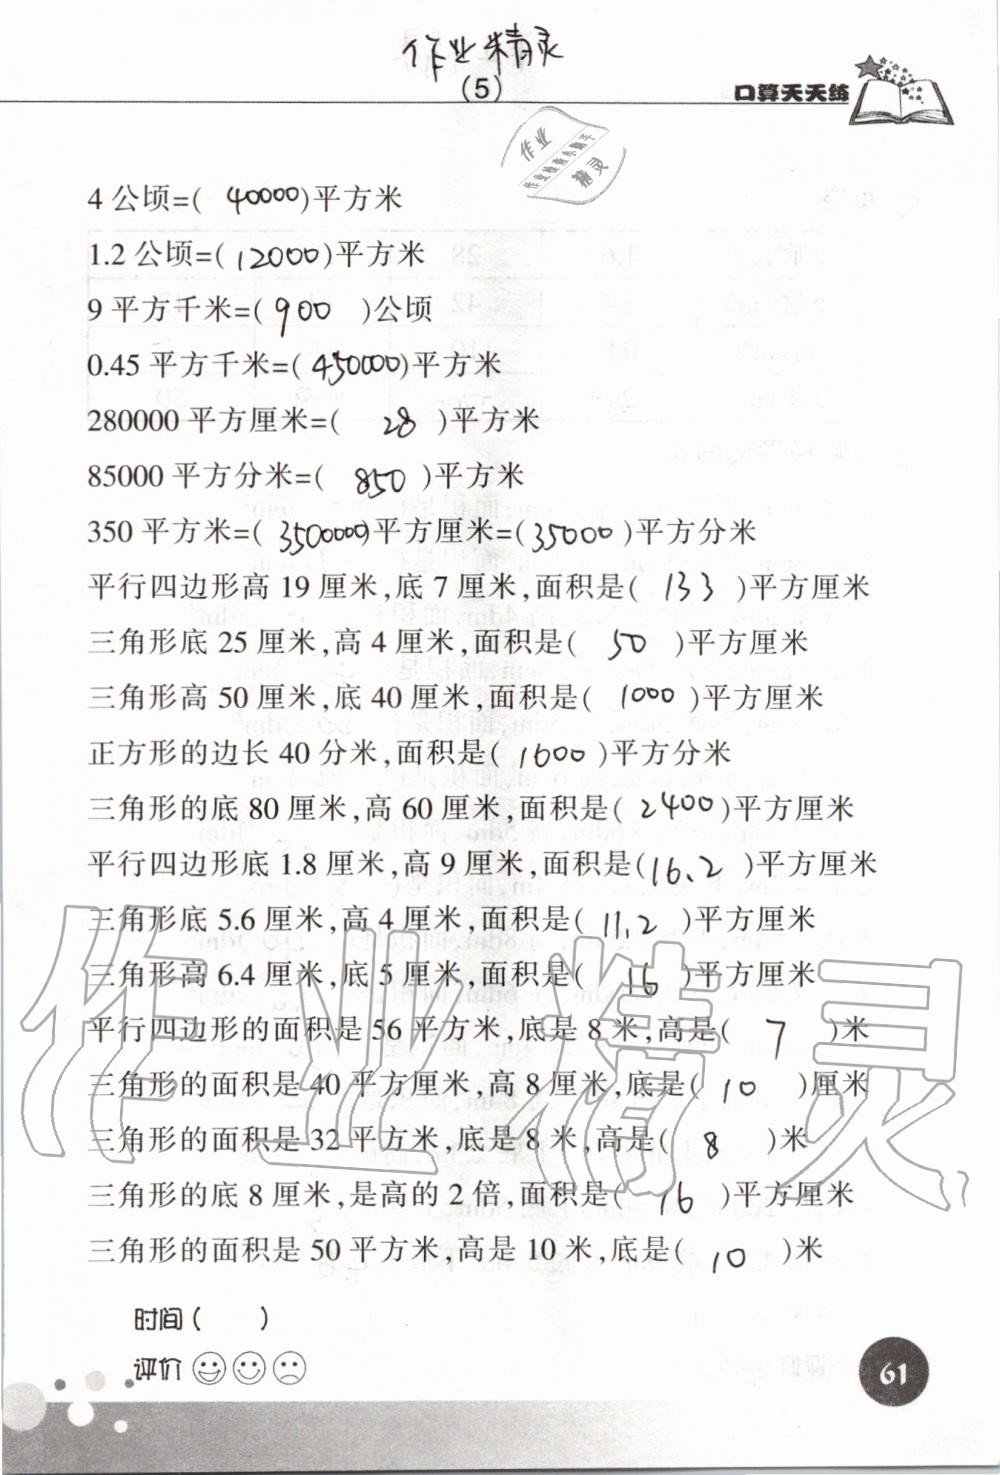 作业精灵
(5)
口算天天练
作业
作业检查小助手
精灵
4公顷=( 40000)平方米
1.2公顷=(12000)平方米
9平方千米=(900 )公顷
0.45平方千米=(450000)平方米
280000平方厘米=( 28 )平方米
85000平方分米=( 850 )平方米
350平方米=( 3500000)平方厘米=(35000 )平方分米
平行四边形高19厘米,底7厘米,面积是( 133 )平方厘米
三角形底25厘米,高4厘米,面积是( 50 )平方厘米
三角形高50厘米,底40厘米,面积是( 1000 )平方厘米
正方形的边长40分米,面积是( 1600 )平方分米
三角形的底80厘米,高60厘米,面积是( 2400)平方厘米
平行四边形底1.8厘米,高9厘米,面积是(16.2 )平方厘米
三角形底5.6厘米,高4厘米,面积是( 11.2 )平方厘米
三角形高6.4厘米,底5厘米,面积是( 16 )平方厘米
平行四边形的面积是56平方米,底是8米,高是( 7 )米
三角形的面积是40平方厘米,高8厘米,底是( 10 )厘米
三角形的面积是32平方米,底是8米,高是( 8 )米
三角形的底8厘米,是高的2倍,面积是( 16 )平方厘米
三角形的面积是50平方米,高是10米,底是( 10 )米
作业精灵
时间( )
评价
61